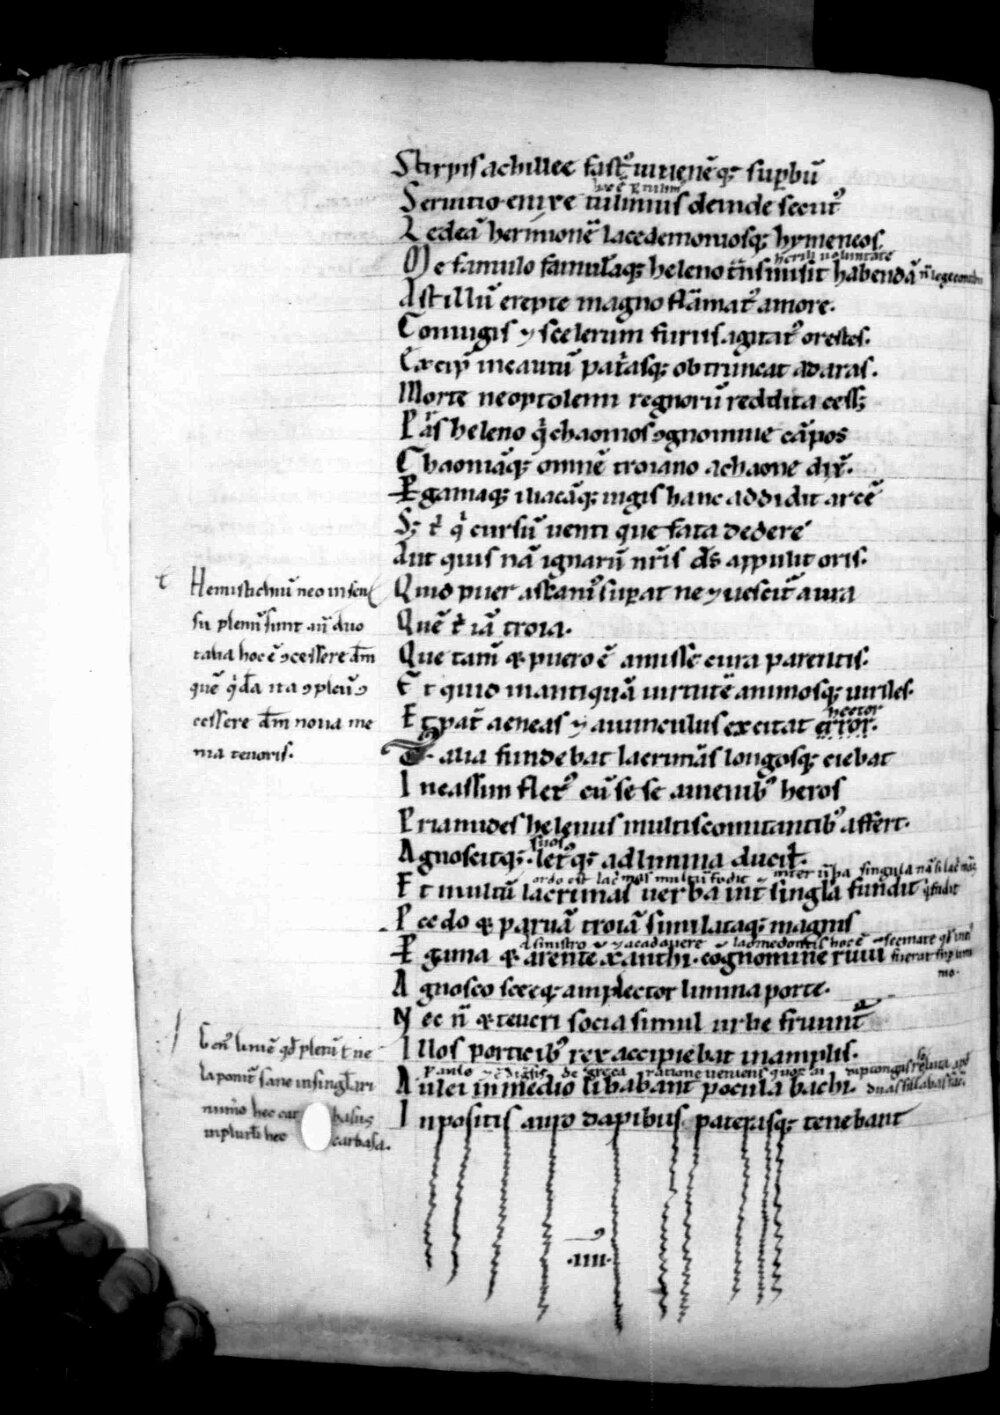 Stirpis achillee fast᷒ iuuenēq; sup̄bū
hoc ē
Seruitio enixe tulimus deinde secut᷒
Ledeā hermionē lacedemoniosq; hymeneos
herili uoluntate
Me famulo famulāq; heleno t̄nsmisit habendā
Ast illū erepte magno flāmat᷒ amore.
Coniugis ⁊ scelerum furiis agitat᷒ orestes.
Excip̄ incautū pat̄asq; obtruncat ad aras.
Morte neoptolemi regnorū reddita cess;
Pars heleno q̄ chaonios ꝯgnomine cāpos
Chaoniāq; omnē troiano a chaone dix̄.
P̱gamaq; iliacāq; iugis hanc addidit arcē
S; t̄ q̄ cursū uenti que fata dedere
Aut quis nā ignarū nr̄is ds̄ appulit oris.
Quid puer ascani᷒ sup̱at ne ⁊ uescit̄ aura
Quē t̄ iā troia.
Que tam̄ ē puero ē amisse cura parentis.
Et quid in antiquā uirtutē animosq; uiriles.
hector
Et pat̄ aeneas ⁊ auunculus excitat error.
Talia fundebat lacrimās longosq; ciebat
Incassum flet᷒ cū se se a menib᷒ heros
Priamides helenus multis comitantib᷒ affert.
suos
Agnoscitq; let᷒q; ad limina ducit.
ordo est lac̄mas multū fudit inter uba singula
Et multū lacrimas uerba int̄ singla fundit
Pcedo & paruā troiā simulataq; magnis
P̱gama & arentē xanthi cognomine riuū
Agnosco sceeq; amplector limina porte.
Nec n̄ & teucri socia simul urbe fruunt̄
Illos porticib᷒ rex accipiebat in amplis.
Aulei in medio libabant pocula bachi
Inpositis auro dapibus paterasq; tenebant
.iiii.
Hemistichiū neo in sen
su plenū sunt aū duo
talia hoc ē ꝯcessere dm̄
quē q̄dā ita ꝯpleū ꝯ
cessere dm̄ noua me
nia teucris.
la ponit̄ sane in singlari
num̄o hec car basus
in plurli hec carbasa.